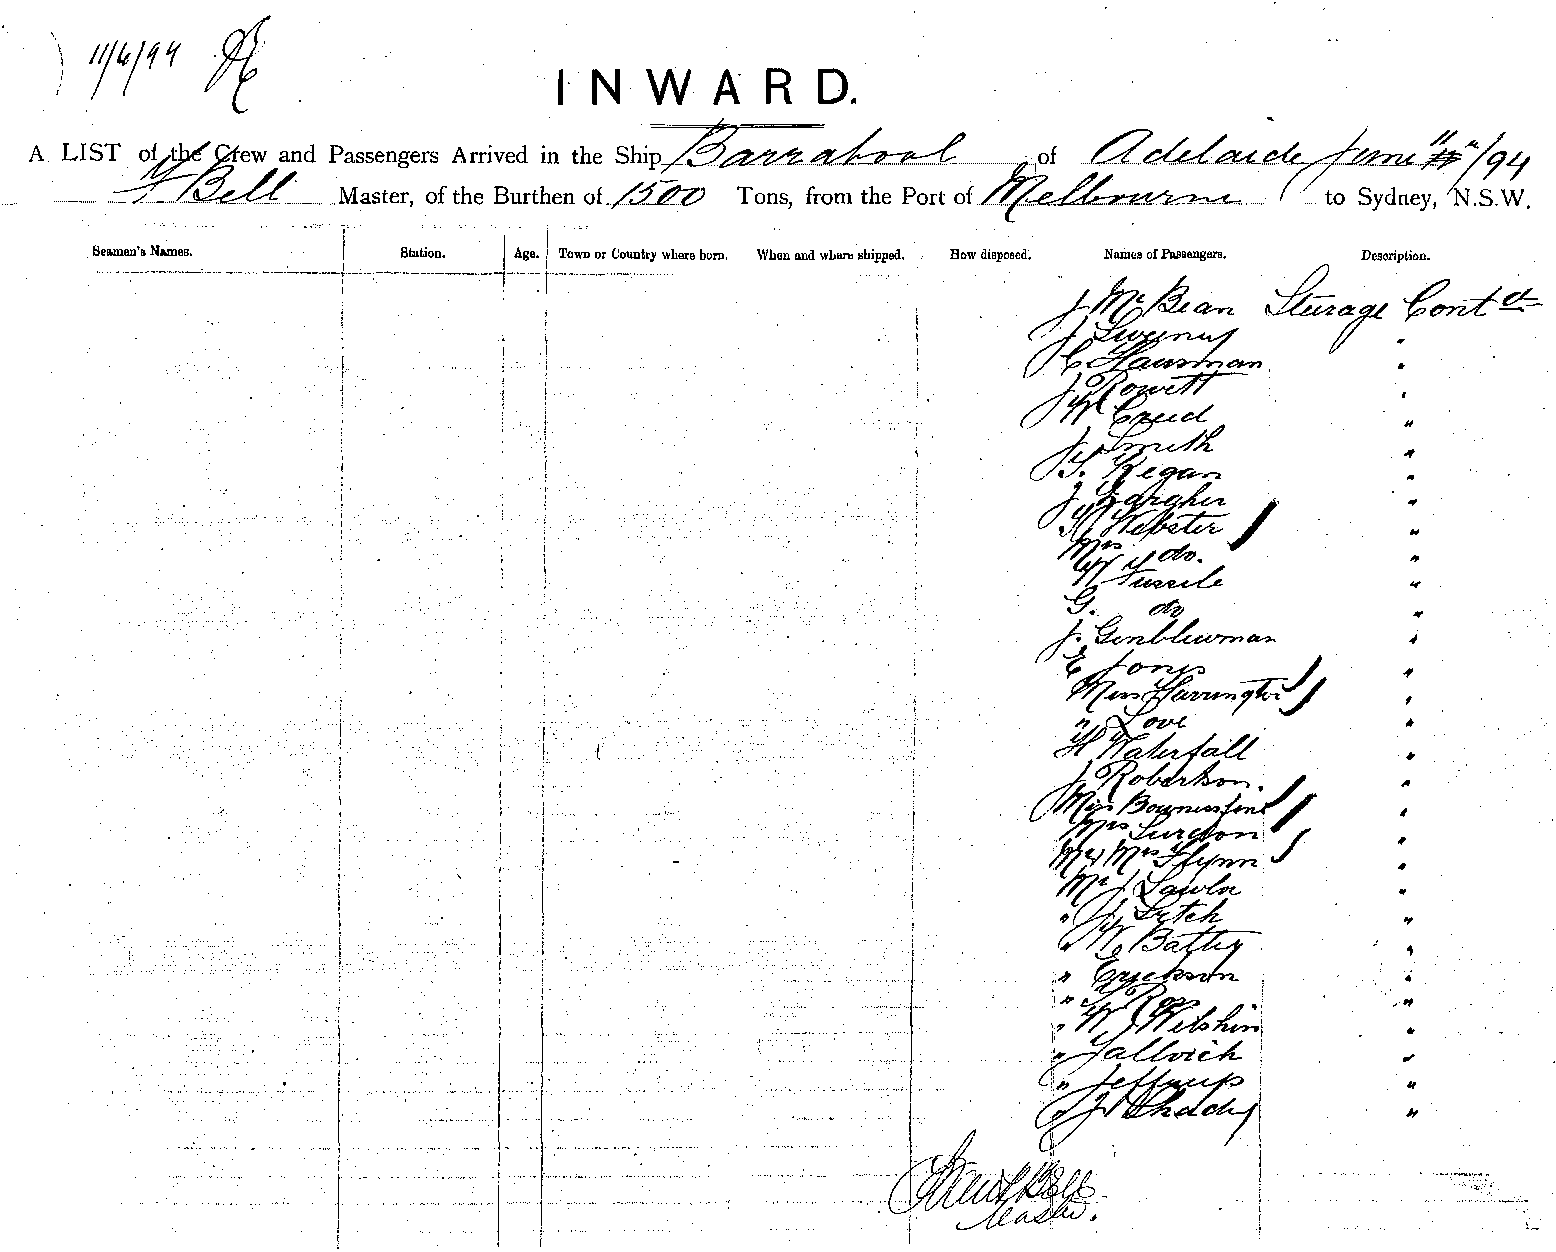 11/6/94
INWARD.
A LIST of the Crew and Passengers Arrived in the Ship Barrabool of Adelaide June 11th/94
F Bell Master, of the Burthen of 1500 Tons, from the Port of Melbourne to Sydney, N.S.W.
Seamen's Names. Station. Age. Town or Country where born. When and where shipped. How disposed. Names of Passengers. Description.
J McBean Sturage Contd
J Sweeney "
C Hausman "
J Rowett "
W Creed "
J Smith "
T. Regan "
J "
Webster "
Mrs do. "
W "
G. do "
J. Genblewman "
E Jones "
Miss Harrington "
" Love "
H Waterfall "
J Robertson. "
Miss "
Mrs Surgeon "
Mr & Mrs Flynn "
Mr J Lawlor "
" J "
" W Battey "
" Erickson "
" "
" W J Wilshin "
" "
" "
" J "
Bell
Master.